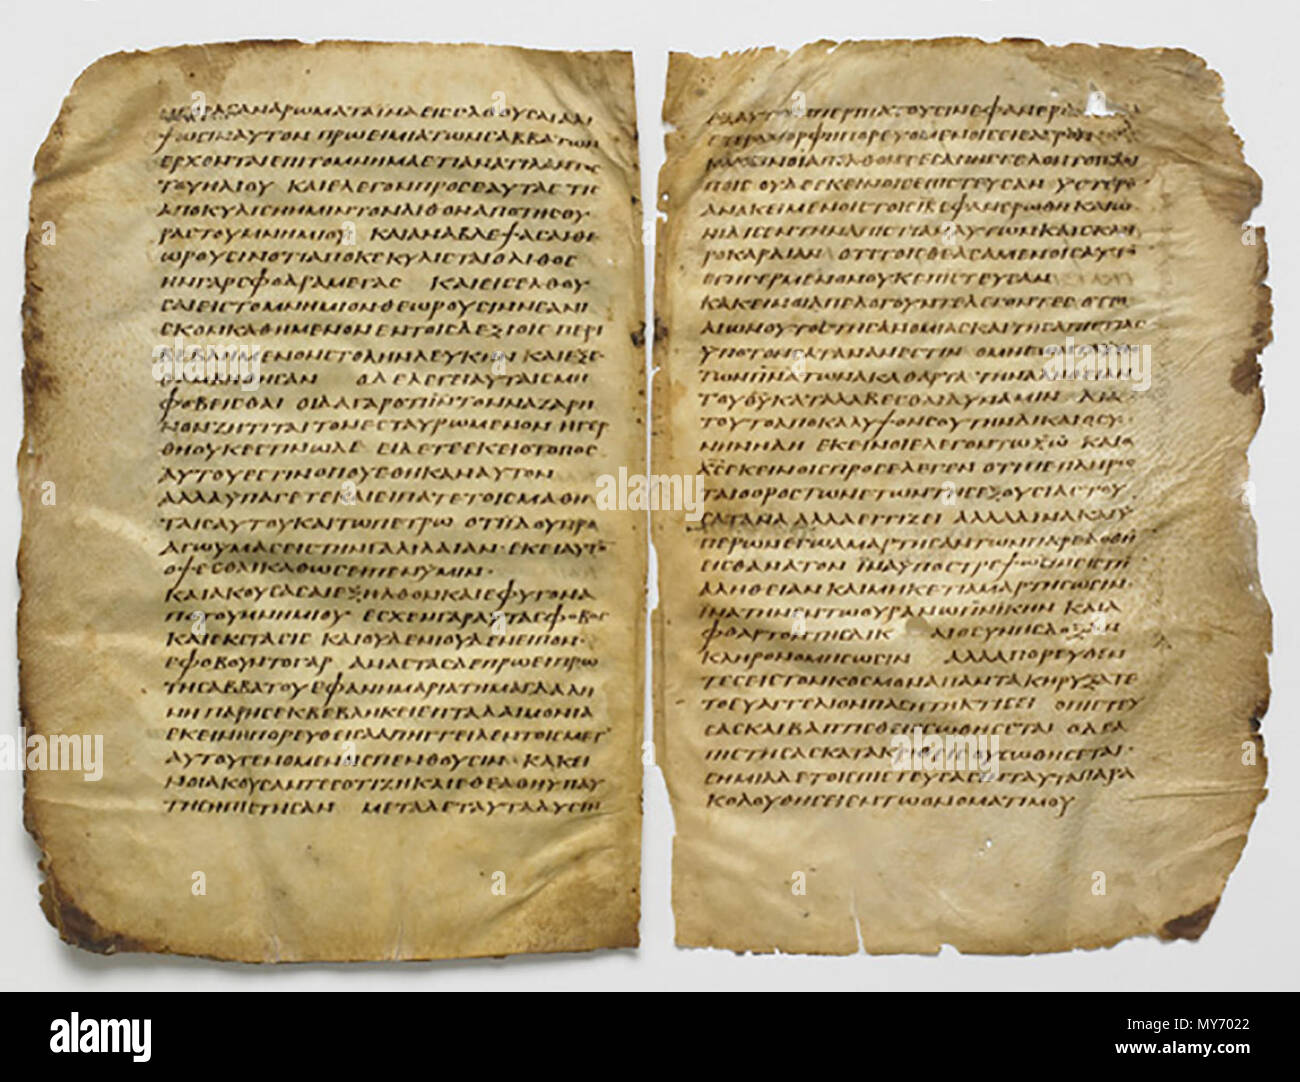 ΑΓΟΡΑΣΑΝ ΑΡΩΜΑΤΑ ΙΝΑ ΕΙΣΕΛΘΟΥΣΑΙ ΑΛΙ
ΨΩΣΙΝ ΑΥΤΟΝ ΠΡΩΕΙ ΜΙΑ ΤΩΝ ΣΑΒΒΑΤΩΝ
ΕΡΧΟΝΤΑΙ ΕΠΙ ΤΟ ΜΝΗΜΑ ΕΤΙ ΑΝΑΤΙΛΑΝΤΟΣ
ΤΟΥ ΗΛΙΟΥ ΚΑΙ ΕΛΕΓΟΝ ΠΡΟΣ ΕΑΥΤΑΣ ΤΙΣ
ΑΠΟΚΥΛΙΣΗ ΗΜΙΝ ΤΟΝ ΛΙΘΟΝ ΑΠΟ ΤΗΣ ΘΥ
ΡΑΣ ΤΟΥ ΜΝΗΜΙΟΥ ΚΑΙ ΑΝΑΒΛΕΨΑΣΑΙ ΘΕ
ΩΡΟΥΣΙΝ ΟΤΙ ΑΠΟΚΕΚΥΛΙΣΤΑΙ Ο ΛΙΘΟΣ
ΗΝ ΓΑΡ ΣΦΟΔΡΑ ΜΕΓΑΣ ΚΑΙ ΕΙΣΕΛΘΟΥ
ΣΑΙ ΕΙΣ ΤΟ ΜΝΗΜΙΟΝ ΘΕΩΡΟΥΣΙΝ ΝΕΑΝΙ
ΣΚΟΝ ΚΑΘΗΜΕΝΟΝ ΕΝ ΤΟΙΣ ΔΕΞΙΟΙΣ ΠΕΡΙ
ΒΕΒΛΗΜΕΝΟΝ ΣΤΟΛΗΝ ΛΕΥΚΗΝ ΚΑΙ ΕΞΕ
ΘΑΜΒΗΘΗΣΑΝ Ο ΔΕ ΛΕΓΕΙ ΑΥΤΑΙΣ ΜΗ
ΦΟΒΕΙΣΘΑΙ ΟΙΔΑ ΓΑΡ ΟΤΙ ΙΝ ΤΟΝ ΝΑΖΑΡΗ
ΝΟΝ ΖΗΤΙΤΑΙ ΤΟΝ ΕΣΤΑΥΡΩΜΕΝΟΝ ΗΓΕΡ
ΘΗ ΟΥΚ ΕΣΤΙΝ ΩΔΕ ΕΙΔΕΤΕ ΕΚΕΙΣ Ο ΤΟΠΟΣ
ΑΥΤΟΥ ΕΣΤΙΝ ΟΠΟΥ ΕΘΗΚΑΝ ΑΥΤΟΝ
ΑΛΛΑ ΥΠΑΓΕΤΕ ΚΑΙ ΕΙΠΑΤΕ ΤΟΙΣ ΜΑΘΗ
ΤΑΙΣ ΑΥΤΟΥ ΚΑΙ ΤΩ ΠΕΤΡΩ ΟΤΙ ΪΔΟΥ ΠΡΟ
ΑΓΩ ΥΜΑΣ ΕΙΣ ΤΗΝ ΓΑΛΙΛΑΙΑΝ· ΕΚΕΙ ΑΥΤΟ
ΟΨΕΣΘΑΙ ΚΑΘΩΣ ΕΙΠΕΝ ΥΜΙΝ·
ΚΑΙ ΑΚΟΥΣΑΣΑΙ ΕΞΗΛΘΟΝ ΚΑΙ ΕΦΥΓΟΝ Α
ΠΟ ΤΟΥ ΜΝΗΜΙΟΥ ΕΣΧΕΝ ΓΑΡ ΑΥΤΑΣ ΦΟΒΟΣ
ΚΑΙ ΕΚΣΤΑΣΙΣ ΚΑΙ ΟΥΔΕΝΙ ΟΥΔΕΝ ΕΙΠΟΝ·
ΕΦΟΒΟΥΝΤΟ ΓΑΡ ΑΝΑΣΤΑΣ ΔΕ ΠΡΩΕΙ ΠΡΩ
ΤΗ ΣΑΒΒΑΤΟΥ ΕΦΑΝΗ ΜΑΡΙΑ ΤΗ ΜΑΓΔΑΛΗ
ΝΗ ΠΑΡ ΗΣ ΕΚΒΕΒΛΗΚΕΙ ΕΠΤΑ ΔΑΙΜΟΝΙΑ
ΕΚΕΙΝΗ ΠΟΡΕΥΘΕΙΣΑ ΑΠΗΓΓΕΙΛΕΝ ΤΟΙΣ ΜΕΤ
ΑΥΤΟΥ ΓΕΝΟΜΕΝΟΙΣ ΠΕΝΘΟΥΣΙΝ· ΚΑΚΕΙ
ΝΟΙ ΑΚΟΥΣΑΝΤΕΣ ΟΤΙ ΖΗ ΚΑΙ ΕΘΕΑΘΗ ΥΠ ΑΥ
ΤΗΣ ΗΠΙΣΤΗΣΑΝ ΜΕΤΑ ΔΕ ΤΑΥΤΑ ΔΥΣΙΝ
ΕΞ ΑΥΤΩΝ ΠΕΡΙΠΑΤΟΥΣΙΝ ΕΦΑΝΕΡΩΘΗ
ΕΤΕΡΑ ΜΟΡΦΗ ΠΟΡΕΥΟΜΕΝΟΙΣ ΕΙΣ ΑΓΡΟΝ
ΚΑΚΕΙΝΟΙ ΑΠΕΛΘΟΝΤΕΣ ΑΠΗΓΓΕΛΟΝ ΤΟΙΣ ΛΟΙ
ΠΟΙΣ ΟΥΔΕ ΕΚΕΙΝΟΙΣ ΕΠΙΣΤΕΥΣΑΝ ΥΣΤΕΡΟ
ΑΝΑΚΕΙΜΕΝΟΙΣ ΤΟΙΣ ΙΒ ΕΦΑΝΕΡΩΘΗ ΚΑΙ Ω
ΝΙΔΙΣΕΝ ΤΗΝ ΑΠΙΣΤΙΑΝ ΑΥΤΩΝ ΚΑΙ ΣΚΛΗ
ΡΟΚΑΡΔΙΑΝ ΟΤΙ ΤΟΙΣ ΘΕΑΣΑΜΕΝΟΙΣ ΑΥΤΟ
ΕΓΗΓΕΡΜΕΝΟΝ ΟΥΚ ΕΠΙΣΤΕΥΣΑΝ
ΚΑΚΕΙΝΟΙ ΑΠΕΛΟΓΟΥΝΤΕ ΛΕΓΟΝΤΕΣ ΟΤΙ Ο
ΑΙΩΝ ΟΥΤΟΣ ΤΗΣ ΑΝΟΜΙΑΣ ΚΑΙ ΤΗΣ ΑΠΙΣΤΙΑΣ
ΥΠΟ ΤΟΝ ΣΑΤΑΝΑΝ ΕΣΤΙΝ Ο ΜΗ ΕΩΝ ΤΑ ΥΠΟ
ΤΩΝ ΠΝΑΤΩΝ ΑΚΑΘΑΡΤΑ ΤΗΝ ΑΛΗΘΕΙΑΝ
ΤΟΥ ΘΥ ΚΑΤΑΛΑΒΕΣΘΑΙ ΔΥΝΑΜΙΝ ΔΙΑ
ΤΟΥΤΟ ΑΠΟΚΑΛΥΨΟΝ ΣΟΥ ΤΗΝ ΔΙΚΑΙΟΣΥ
ΝΗΝ ΗΔΗ ΕΚΕΙΝΟΙ ΕΛΕΓΟΝ ΤΩ ΧΩ ΚΑΙ Ο
ΧΣ ΕΚΕΙΝΟΙΣ ΠΡΟΣΕΛΕΓΕΝ ΟΤΙ ΠΕΠΛΗΡΩ
ΤΑΙ Ο ΟΡΟΣ ΤΩΝ ΕΤΩΝ ΤΗΣ ΕΞΟΥΣΙΑΣ ΤΟΥ
ΣΑΤΑΝΑ ΑΛΛΑ ΕΓΓΙΖΕΙ ΑΛΛΑ ΔΙΝΑ ΚΑΙ Υ
ΠΕΡ ΩΝ ΕΓΩ ΑΜΑΡΤΗΣΑΝΤΩΝ ΠΑΡΕΔΟΘΗ
ΕΙΣ ΘΑΝΑΤΟΝ ΪΝΑ ΥΠΟΣΤΡΕΨΩΣΙΝ ΕΙΣ ΤΗ
ΑΛΗΘΕΙΑΝ ΚΑΙ ΜΗΚΕΤΙ ΑΜΑΡΤΗΣΩΣΙΝ·
ΪΝΑ ΤΗΝ ΕΝ ΤΩ ΟΥΡΑΝΩ ΠΝΙΚΗΝ ΚΑΙ Α
ΦΘΑΡΤΟΝ ΤΗΣ ΔΙΚΑΙΟΣΥΝΗΣ ΔΟΞΑΝ
ΚΛΗΡΟΝΟΜΗΣΩΣΙΝ ΑΛΛΑ ΠΟΡΕΥΘΕΝ
ΤΕΣ ΕΙΣ ΤΟΝ ΚΟΣΜΟΝ ΑΠΑΝΤΑ ΚΗΡΥΞΑΤΕ
ΤΟ ΕΥΑΓΓΕΛΙΟΝ ΠΑΣΗ ΤΗ ΚΤΙΣΕΙ Ο ΠΙΣΤΕΥ
ΣΑΣ ΚΑΙ ΒΑΠΤΙΣΘΕΙΣ ΣΩΘΗΣΕΤΑΙ Ο ΔΕ Α
ΠΙΣΤΗΣΑΣ ΚΑΤΑΚΡΙΘΕΙΣ ΟΥ ΣΩΘΗΣΕΤΑΙ·
ΣΗΜΙΑ ΔΕ ΤΟΙΣ ΠΙΣΤΕΥΣΑΣΙΝ ΤΑΥΤΑ ΠΑΡΑ
ΚΟΛΟΥΘΗΣΕΙ ΕΝ ΤΩ ΟΝΟΜΑΤΙ ΜΟΥ
alamy
MY7022
www.alamy.com